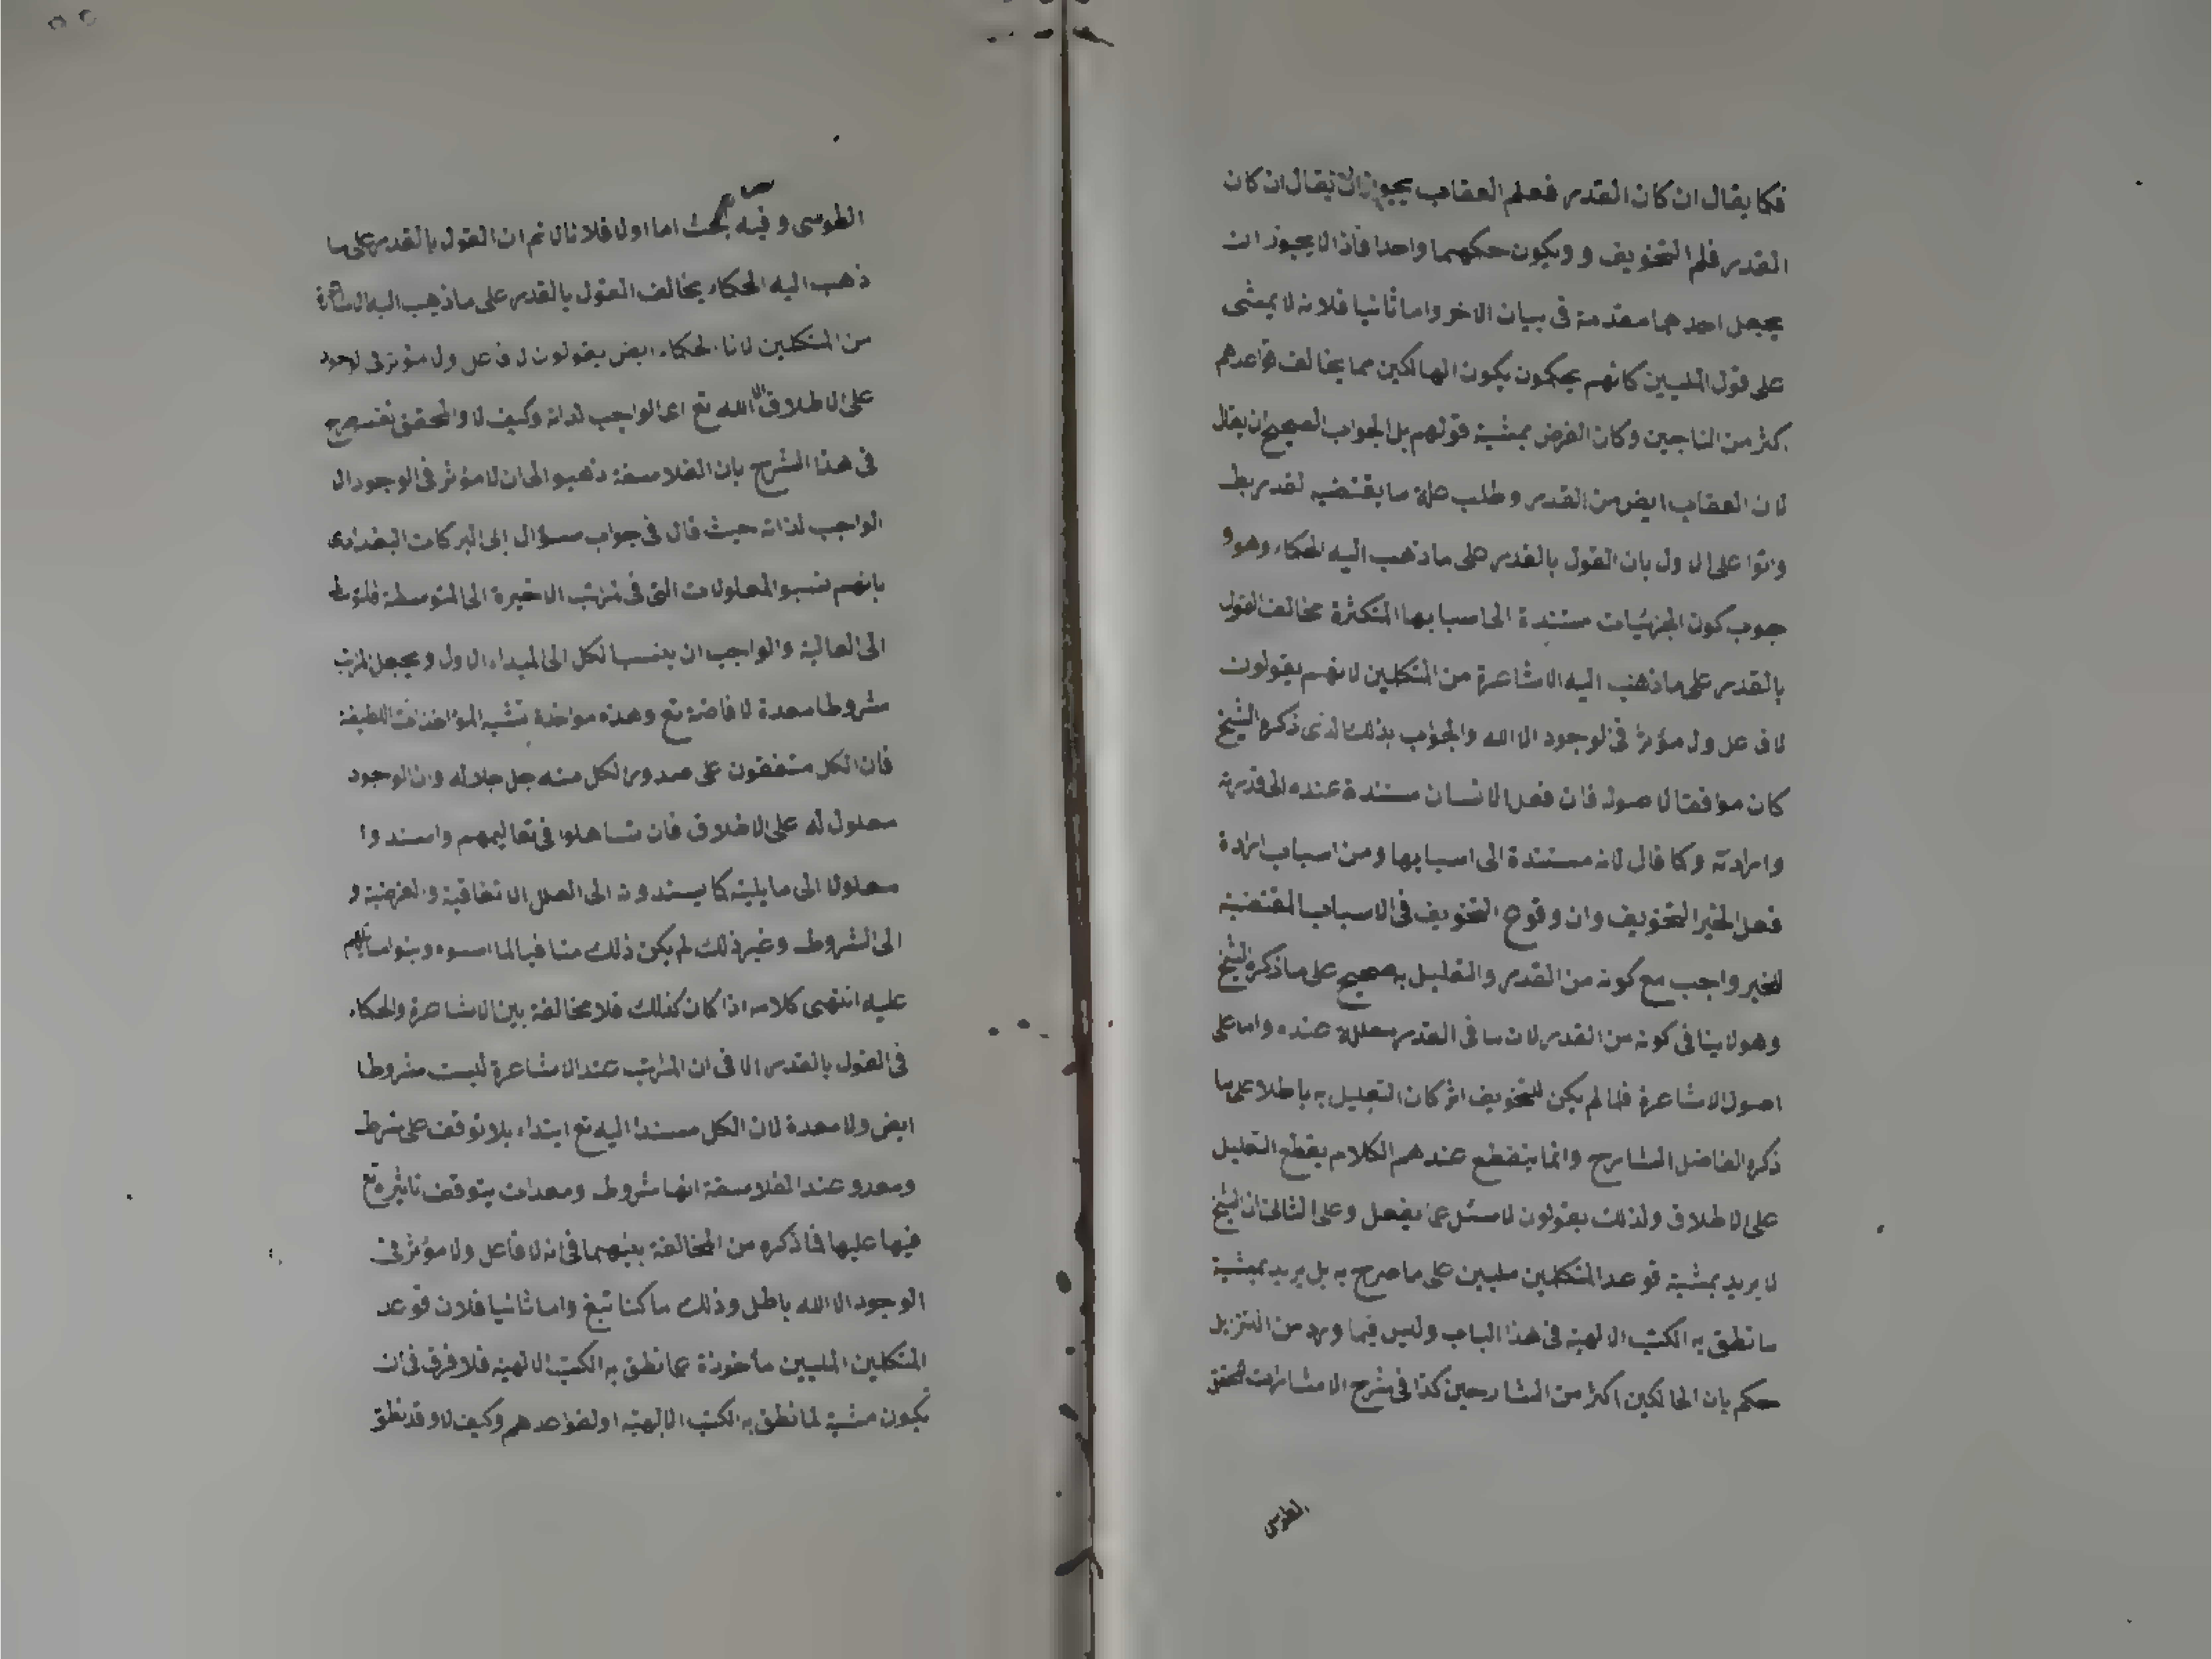 فكا يقال ان كان القدر فعلم العقاب يجوز ان يقال ان كان
القدر فلم التخويف و ويكون حكمهما واحدا فاذا لا يجوز ان
يجعل احدهما مقدمة فى بيان الاخر واما ثانيا فلانه لا يمشى
على قول المليين كانهم يحكمون بكون الهالكين مما يخالف قواعدهم
كثر من الناجين وكان الغرض بمشية قولهم بل الجواب الصحيح ان يقال
لان العقاب ايض من القدر وطلب علة ما يقتضيه لقدر بط
واتوا على الاول بان القول بالقدر على ما ذهب اليه الحكاء وهو و
جوب كون الجزئيات مستندة الى اسبابها المتكثرة مخالف القول
بالقدر على ما ذهب اليه الاشاعرة من المتكلين لانهم يقولون
لا فاعل ولا مؤثر فى لوجود الا الله والجواب بذلك الذى ذكره الشيخ
كان موافقا لاصوله فان فعل الانسان مستندة عنده الى قدرته
وارادته وكا قال لانه مستندة الى اسبابها ومن اسباب ارادة
فعل الخير التخويف وان وقوع التخويف فى الاسباب المقتضية
للخير واجب مع كونه من القدر والتعليل به صحيح على ما ذكره الشيخ
وهو لا ينافى كونه من القدر لان ما فى القدر معللة عنده واما على
اصول الاشاعرة فلما لم يكن للتخويف اثر كان التعليل به باطلا على ما
ذكره الفاضل الشارح وانما ينقطع عندهم الكلام بقطع التعليل
على الاطلاق ولذلك يقولون لا مسئل عما يفعل وعلى الثانى ان الشيخ
لا يريد بمشية قوعد المتكلمين مليين على ما صرح به بل يريد بمشية
ما نطق به الكتب الالهية فى هذا الباب وليس فيما ورد من التنزيل
حكم بان الهالكين اكثر من الشارحين كذا فى شرح الاشارات للمحقق
الطوسى
الطوسى وفيه بحث اما اولا فلانا لا نم ان القول بالقدر على ما
ذهب اليه الحكاء يخالف القول بالقدر على ما ذهب اليه الاشاعرة
من المتكلين لانا لحكاء ايض يقولون لا فاعل ولا مؤثر فى لوجود
على الاطلاق الا الله تع اى الواجب لذاته وكيف لا والمحقق نفسه صرح
فى هذا الشرح بان الفلاسفة ذهبوا الى ان لا مؤثر فى الوجود الا
الواجب لذاته حيث قال فى جواب سؤال ابى البركات البغدادى
بانهم نسبو المعلولات التى فى مراتب الاخيرة الى المتوسطة فلتوسط
الى العالية والواجب ان ينسب الكل الى المبداء الاول ويجعل المراتب
شروطا معدة لافاضة تع وهذه مواخذة تشبه المؤاخذات اللطيفة
فان الكل متفقون على صدور الكل منه جل جلاله وان الوجود
معلول له على الاطلاق فان تساهلوا فى تعاليمهم واسندوا
معلولا الى ما يليه كا يسندونه الى العلل الاتفاقية والعرضية و
الى الشروط وغير ذلك لم يكن ذلك منافيا لما اسسوه وبنوا مسائلهم
عليه انتهى كلامه اذا كان كذلك فلا مخالفة بين الاشاعرة والحكاء
فى القول بالقدر الا فى ان المراتب عند الاشاعرة ليست شروطا
ايض ولا معدة لان الكل مسندا اليه تع ابتداء بلا توقف على شرط
ومعدو عند الفلاسفة انها شروط ومعدات يتوقف تاثيره تع
فيها عليها فما ذكره من المخالفة بينهما فى انه لا فاعل ولا مؤثر فى
الوجود الا الله باطل وذلك ما كنا نبغ واما ثانيا فلان قوعد
المتكلين المليين مأخوذة عما نطق به الكتب الالهية فلا فرق فى ان
يكون مشية لما نطق به الكتب الالهية او لقواعدهم وكيف لا وقد نطق